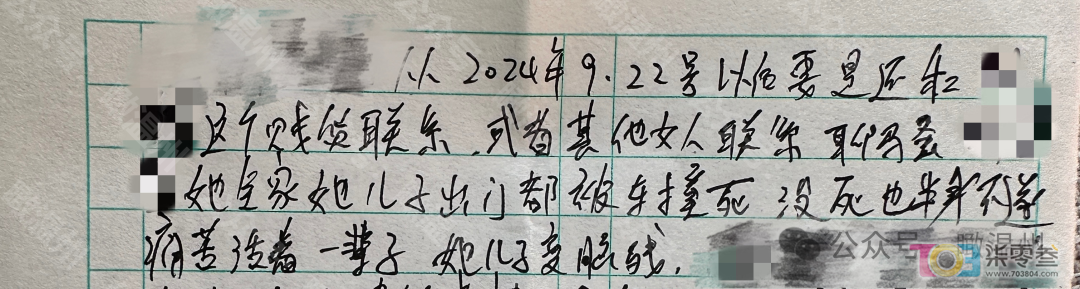 从2024年9.22号以后要是还和
这个贱货联系.或者其他女人联系 聊骚
她全家她儿子出门都被车撞死 没死也半身
痛苦活着一辈子 她儿子变脑残.
公众号·瞰温州
柒零叁
www.703804.com